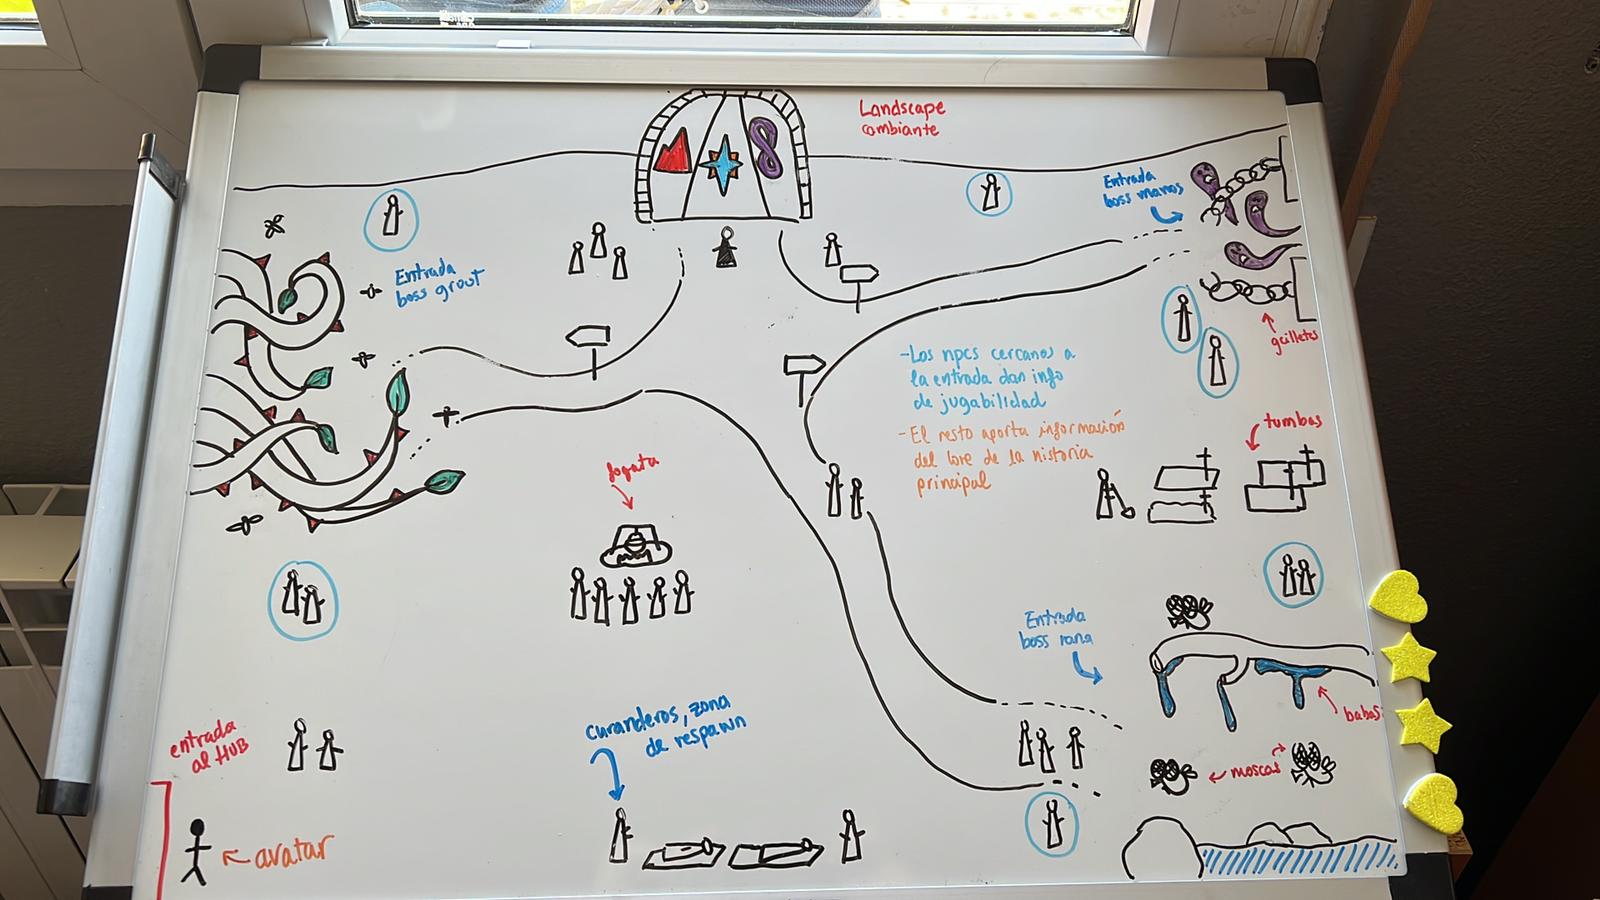 Landscape
cambiante
Entrada
boss manos
Entrada
boss grout
grilletes
-Los npcs cercanos a
la entrada dan info
de jugabilidad
- El resto aporta información
del lore de la historia
principal
tumbas
fogata
Entrada
boss rana
babas
moscas
curanderos, zona
de respawn
entrada
al HUB
avatar